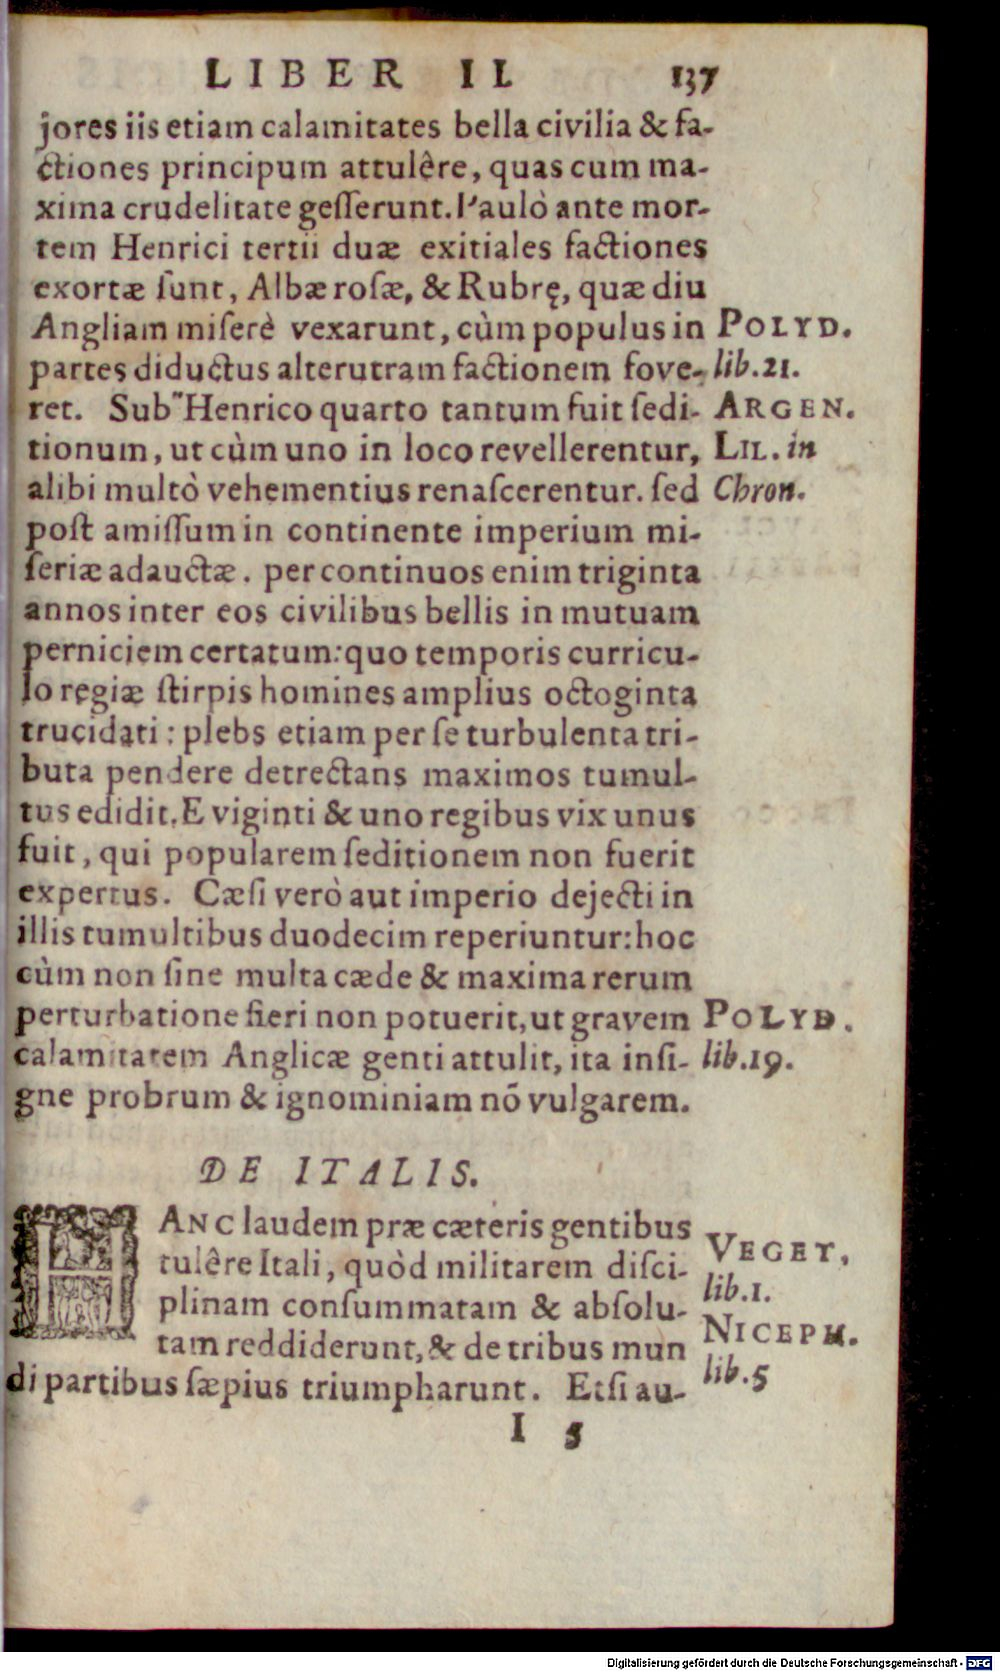 LIBER II. 137
jores iis etiam calamitates bella civilia & fa-
ctiones principum attulêre, quas cum ma-
xima crudelitate gesserunt. Paulò ante mor-
tem Henrici tertii duæ exitiales factiones
exortæ sunt, Albæ rosæ, & Rubrę, quæ diu
Angliam miserè vexarunt, cùm populus in
partes diductus alterutram factionem fove-
ret. Sub Henrico quarto tantum fuit sedi-
tionum, ut cùm uno in loco revellerentur,
alibi multò vehementius renascerentur. sed
post amissum in continente imperium mi-
seriæ adauctæ. per continuos enim triginta
annos inter eos civilibus bellis in mutuam
perniciem certatum: quo temporis curricu-
lo regiæ stirpis homines amplius octoginta
trucidati: plebs etiam per se turbulenta tri-
buta pendere detrectans maximos tumul-
tus edidit. E viginti & uno regibus vix unus
fuit, qui popularem seditionem non fuerit
expertus. Cæsi verò aut imperio dejecti in
illis tumultibus duodecim reperiuntur: hoc
cùm non sine multa cæde & maxima rerum
perturbatione fieri non potuerit, ut gravem
calamitatem Anglicæ genti attulit, ita insi-
gne probrum & ignominiam nō vulgarem.
POLYD.
lib. 21.
ARGEN.
LIL. in
Chron.
POLYD.
lib. 19.
DE ITALIS.
HANC laudem præ cæteris gentibus
tulêre Itali, quòd militarem disci-
plinam consummatam & absolu-
tam reddiderunt, & de tribus mun
di partibus sæpius triumpharunt. Etsi au-
VEGET,
lib. 1.
NICEPH.
lib. 5
I 5
Digitalisierung gefördert durch die Deutsche Forschungsgemeinschaft - DFG